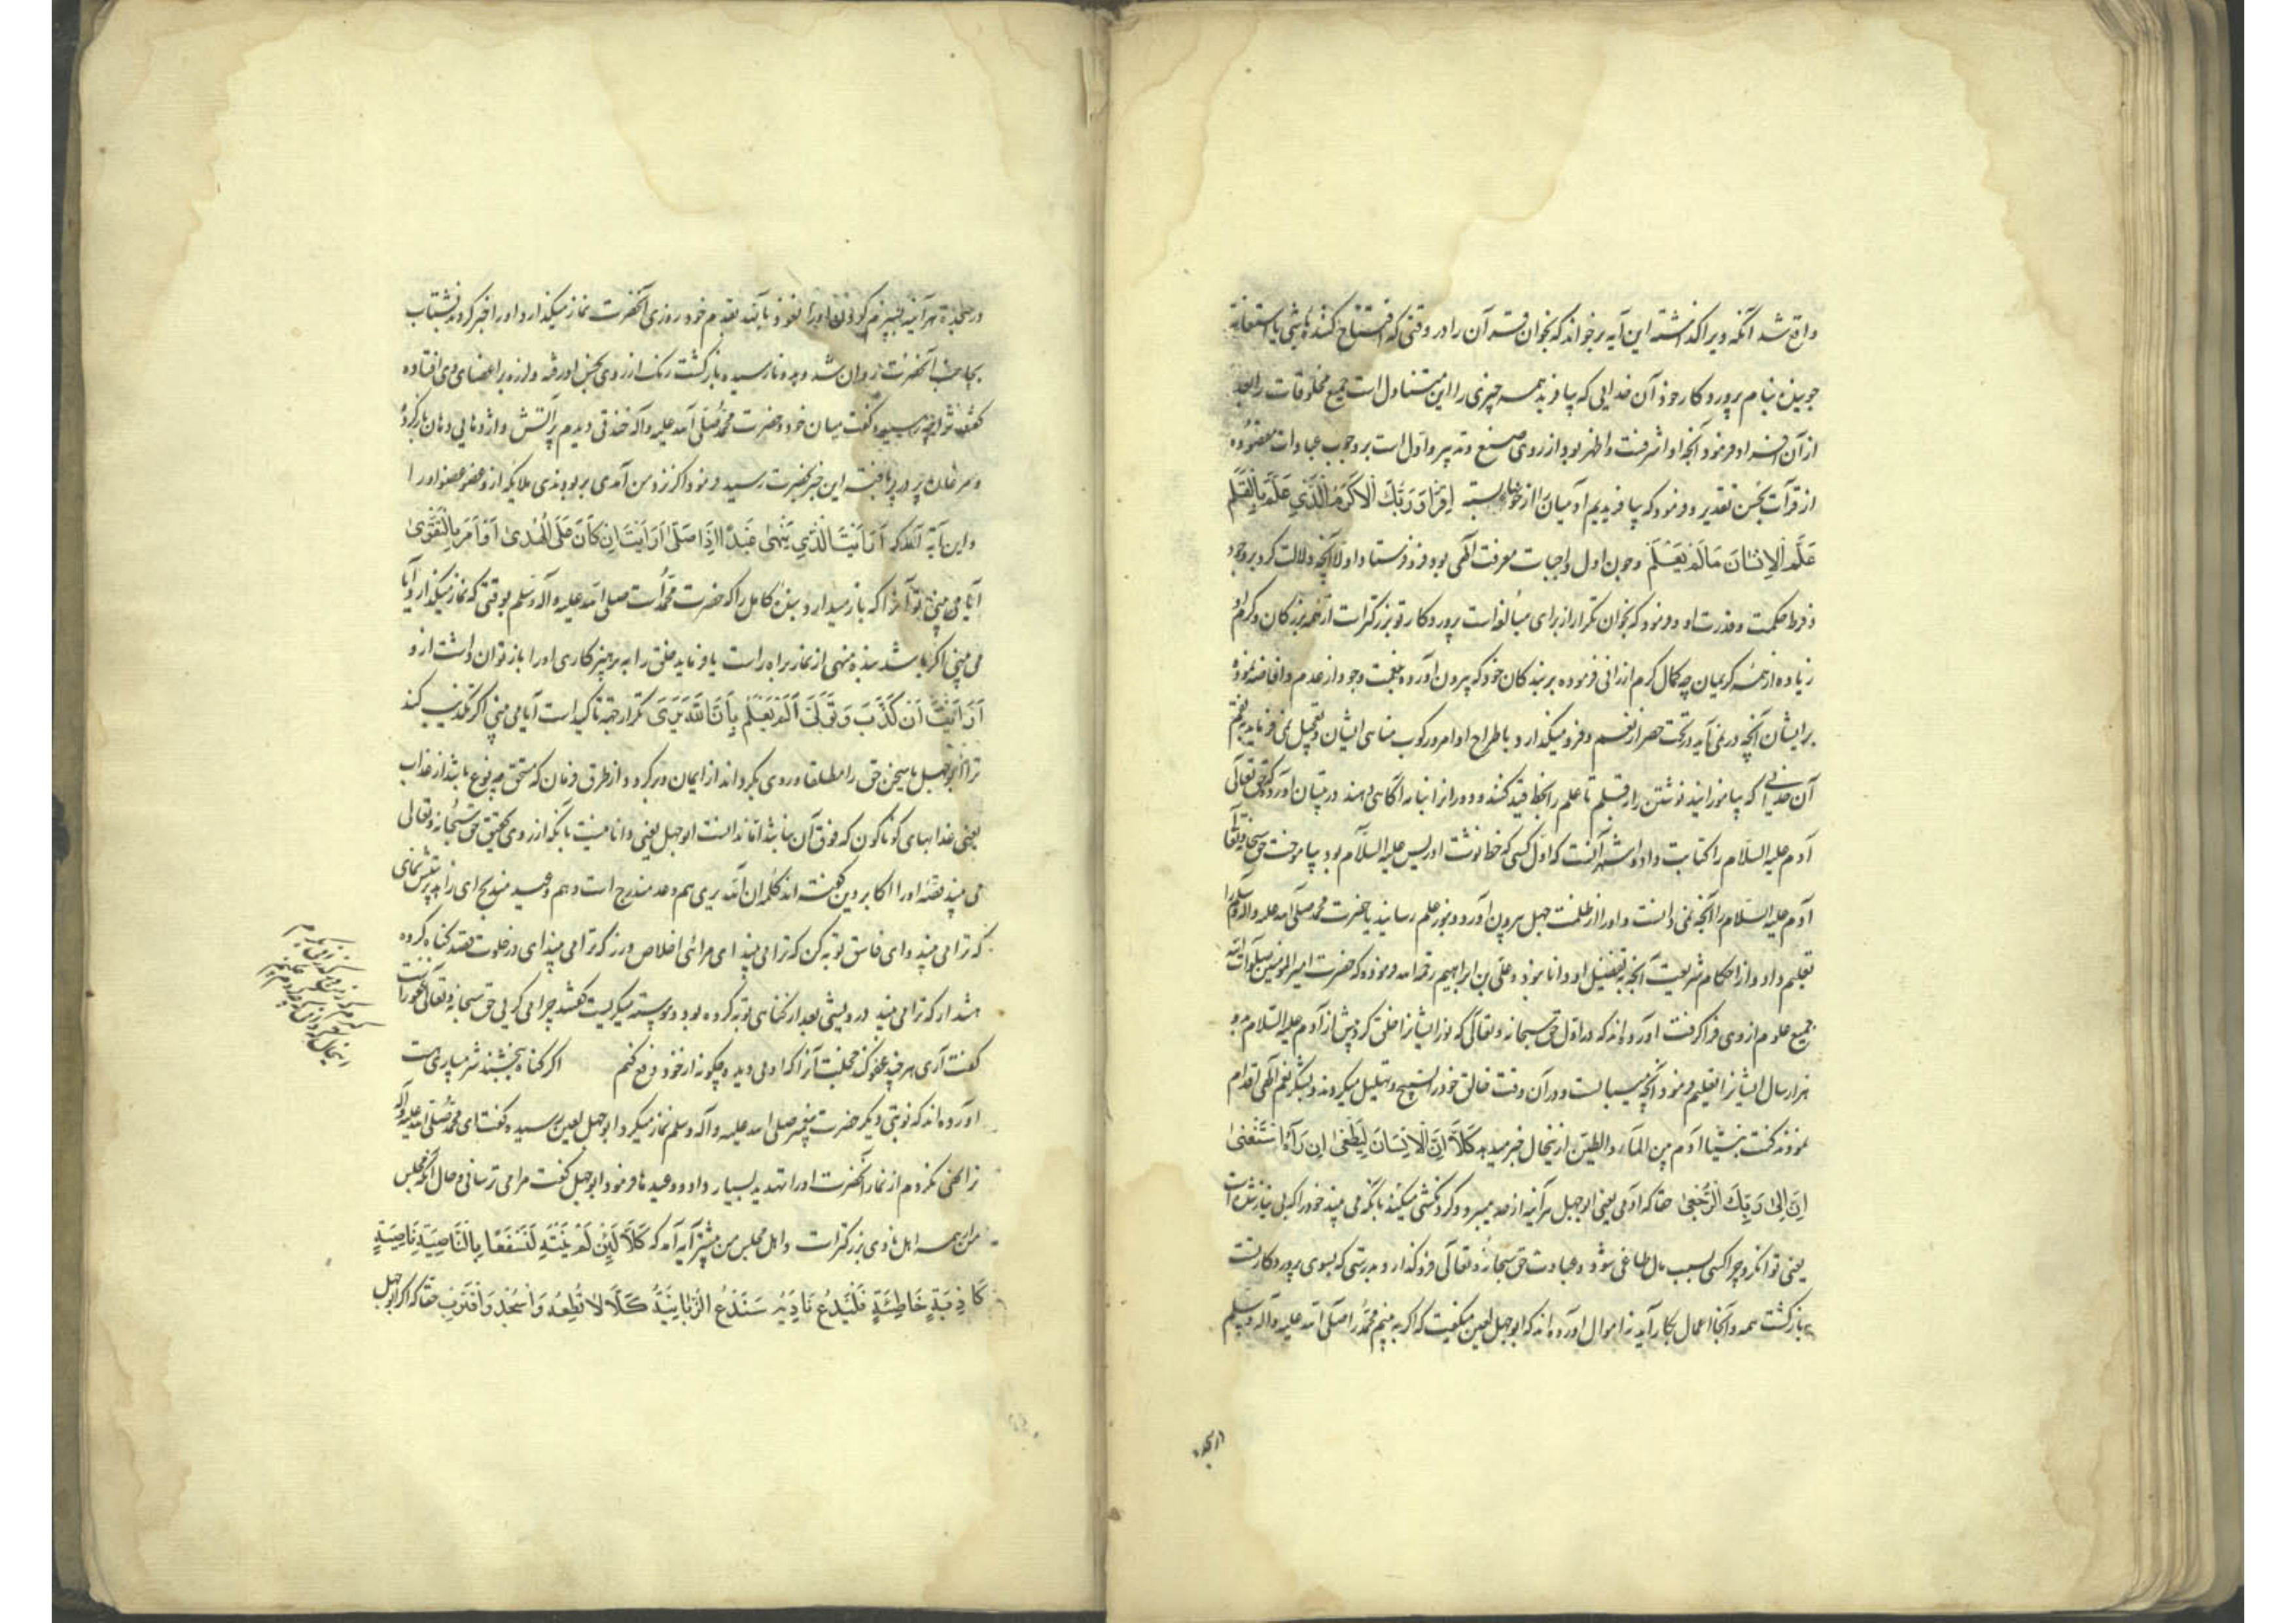 واقع شد آنکه ویرا گذاشته این آیه بر خواند که بخوان قرآن را در وقتی که افتتاح کننده باشی یا استعانة
جوینده بنام پروردکار خود آن خدایی که بیافرید همه چیزی را این متناول است جمیع مخلوقات را بعد
از آن افراد فرمود آنچه او اشرفست و اظهر بود از روی صنع و تدبیر و اول است بر وجوب عبادات مقصوده
از قرآت بحسن تقدیر و فرمود که بیافریدیم آدمیان را از خون بسته اِقْرَا وَرَبُّكَ الْاَكْرَمُ الَّذِي عَلَّمَ بِالْقَلَمِ
عَلَّمَ الْاِنْسَانَ مَا لَمْ يَعْلَمْ و چون اول واجبات معرفت الهی بود فرو فرستاد اولا آنچه دلالت کرد بر وجود
و فرط حکمت و قدرت او و فرمود که بخوان تکرار از برای مبالغه است پروردکار تو بزرکتر است از همه بزرکان و کرم او
زیاده از همه کریمان چه کمال کرم ارزانی فرموده بر بندکان خود که بیرون آورده بنعمت وجود از عدم و افاضه نموده
بر ایشان آنچه در نمی آید در تحت حصر از نعم و فرو میکذارد با طراح اوامر و رکوب مناهی ایشان و تعجیل نمی فرماید
آن خدایی که بیاموزانید نوشتن را بقلم تا علم را بخط قید کنند و دورانرا بنامه آکاهی دهند در تبیان آورده که حق تعالی
آدم علیه السلام را کتابت داد و اشهر آنست که اول کسی که خط نوشت ادریس علیه السلام بود بیاموخت حق سبحانه و تعالی
آدم علیه السلام را آنچه نمی دانست و او را از ظلمت جهل بیرون آورد و بنور علم رسانید یا حضرت محمد صلی الله علیه و آله وسلم را
تعلیم داد و از احکام شریعت آنچه به تفضیل او دانا نبود و علی بن ابراهیم رحمه الله فرموده که حضرت امیر المومنین صلوات الله
جمیع علوم از وی فرا کرفت آورده اند که در اول حق سبحانه و تعالی که نور ایشانرا خلق کرد پیش از آدم علیه السلام به
هزار سال ایشانرا تعلیم فرمود آنچه میبایست و در آن وقت خالق خود را تسبیح و تهلیل میکردند و بشکر نعم الهی اقدام
نمودند کنت نبیا و آدم بین الماء و الطین ازینحال خبر میدهد كَلَّا اِنَّ الْاِنْسَانَ لَيَطْغٰى اِنْ رَآهُ اسْتَغْنٰى
اِنَّ اِلٰى رَبِّكَ الرُّجْعٰى حقا که آدمی یعنی ابوجهل هرآینه از حد میبرد و کردنکشی میکند بآنکه می بیند خود را که بی نیاز شده است
یعنی توانکر و چرا کسی بسبب مال طاغی شود و عبادت حق سبحانه و تعالی فرو کذارد و بدرستی که بسوی پروردکارتست
بازکشت همه و آنجا اعمال بکار آید نه اموال آورده اند که ابوجهل لعین میکفت که اکر به بینم محمد را صلی الله علیه و آله وسلم
در سجده هرآینه بسپرم کردن او را نعوذ بالله بقدم خود روزی آنحضرت نماز میکذارد او را خبر کردند بشتاب
بجانب آنحضرت روان شد و بدو نارسیده بازکشت رنک از روی نحس او رفته و لرزه بر اعضای وی افتاده
کفتند ترا چه رسید کفت میان خود و حضرت محمد صلی الله علیه و آله خندقی دیدم پر آتش و اژدهایی دهان باز کرده
و مرغان پر در پر بافته این خبر بحضرت رسید فرمود اکر نزد من آمدی بربودندی ملایکه او را عضو عضو او را
و این آیه آمد که اَرَاَيْتَ الَّذِي يَنْهٰى عَبْدًا اِذَا صَلّٰى اَرَاَيْتَ اِنْ كَانَ عَلَى الْهُدٰى اَوْ اَمَرَ بِالتَّقْوٰى
آیا می بینی تو آنرا که باز میدارد بنده کامل را که حضرت محمد است صلی الله علیه و آله وسلم بوقتی که نماز میکذارد آیا
می بینی اکر باشد بنده منهی از نماز براه راست یا فرماید خلق را به پرهیزکاری او را باز توان داشت از و
اَرَاَيْتَ اِنْ كَذَّبَ وَتَوَلّٰى اَلَمْ يَعْلَمْ بِاَنَّ اللّٰهَ يَرٰى تکرار جهته تاکید است آیا می بینی اکر تکذیب کند
ترا ابوجهل یا سخن حق را مطلقا و روی بکرداند از ایمان و برکردد از طرق فرمان که مستحق چه نوع باشد از عذاب
یعنی عذابهای کوناکون که فوق آن نباشد آیا ندانست ابوجهل یعنی دانا نیست بآنکه از روی تحقیق حق سبحانه و تعالی
می بیند قصه او را اکابر دین کفته اند کلمه ان الله یری هم وعد مندرج است و هم وعید مندمج ای زاهد
که ترا می بیند و ای فاسق توبه کن که ترا می بیند ای مرائی اخلاص ورز که ترا می بیند ای در خلوت قصد کناه کرده
هشدار که ترا می بیند درویشی بعد از کناهی توبه کرده بود و پیوسته میکریست کفتند چرا می کریی حق سبحانه و تعالی غفور است
کفت آری هر چند عفو کند خجلت آنرا که او می دیده چکونه از خود دفع کنم اکر کناه ببخشند شرمساری هست
آورده اند که نوبتی دیکر حضرت پیغمبر صلی الله علیه و آله وسلم نماز میکرد ابوجهل لعین رسیده کفت ای محمد صلی الله علیه و آله
ترا نهی نکردم از نماز آنحضرت او را تهدید بسیار داد و وعیدها فرمود ابوجهل کفت مرا می ترسانی و حال آنکه مجلس
من از همه اهل نادی بزرکتر است و اهل مجلس من بیشتر آیه آمد که كَلَّا لَئِنْ لَمْ يَنْتَهِ لَنَسْفَعًا بِالنَّاصِيَةِ نَاصِيَةٍ
كَاذِبَةٍ خَاطِئَةٍ فَلْيَدْعُ نَادِيَهُ سَنَدْعُ الزَّبَانِيَةَ كَلَّا لَا تُطِعْهُ وَاسْجُدْ وَاقْتَرِبْ حقا که اکر ابوجهل